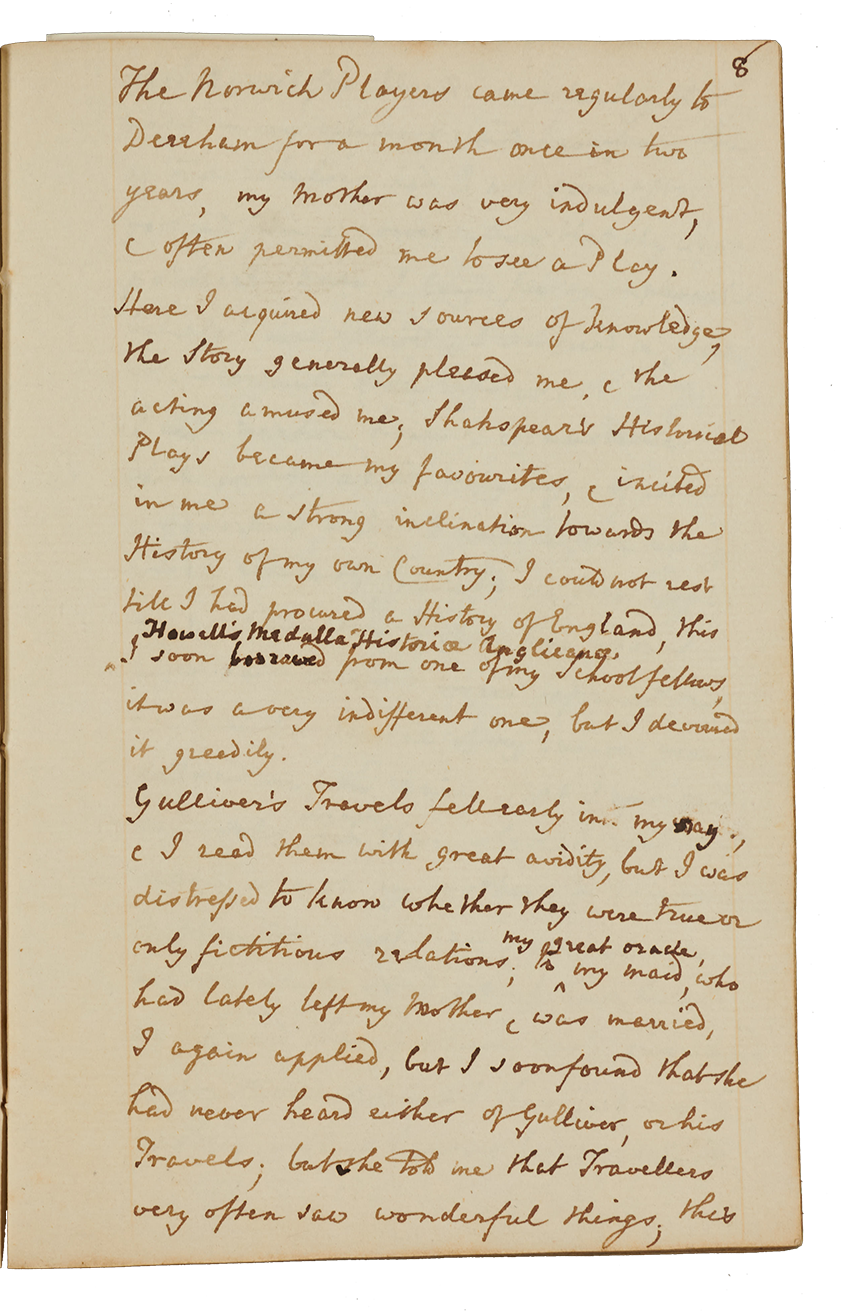 8
The Norwich Players came regularly to
Deerham for a month once in two
years, my Mother was very indulgent,
& often permitted me to see a Play.
Here I acquired new sources of knowledge,
the Story generally pleased me, & the
acting amused me; Shakspear's Historical
Plays became my favourites, & incited
in me a strong inclination towards the
History of my own Country; I could not rest
till I had procured a History of England, this
Howell's Medulla Historiæ Anglicanæ,
I soon borrowed from one of my Schoolfellows,
it was a very indifferent one, but I devoured
it greedily.
Gulliver's Travels fell early in my way,
& I read them with great avidity, but I was
distressed to know whether they were true or
only fictitious relations;
my great oracle,
to my maid, who
had lately left my Mother & was married,
I again applied, but I soon found that she
had never heard either of Gulliver, or his
Travels; but she told me that Travellers
very often saw wonderful things; this